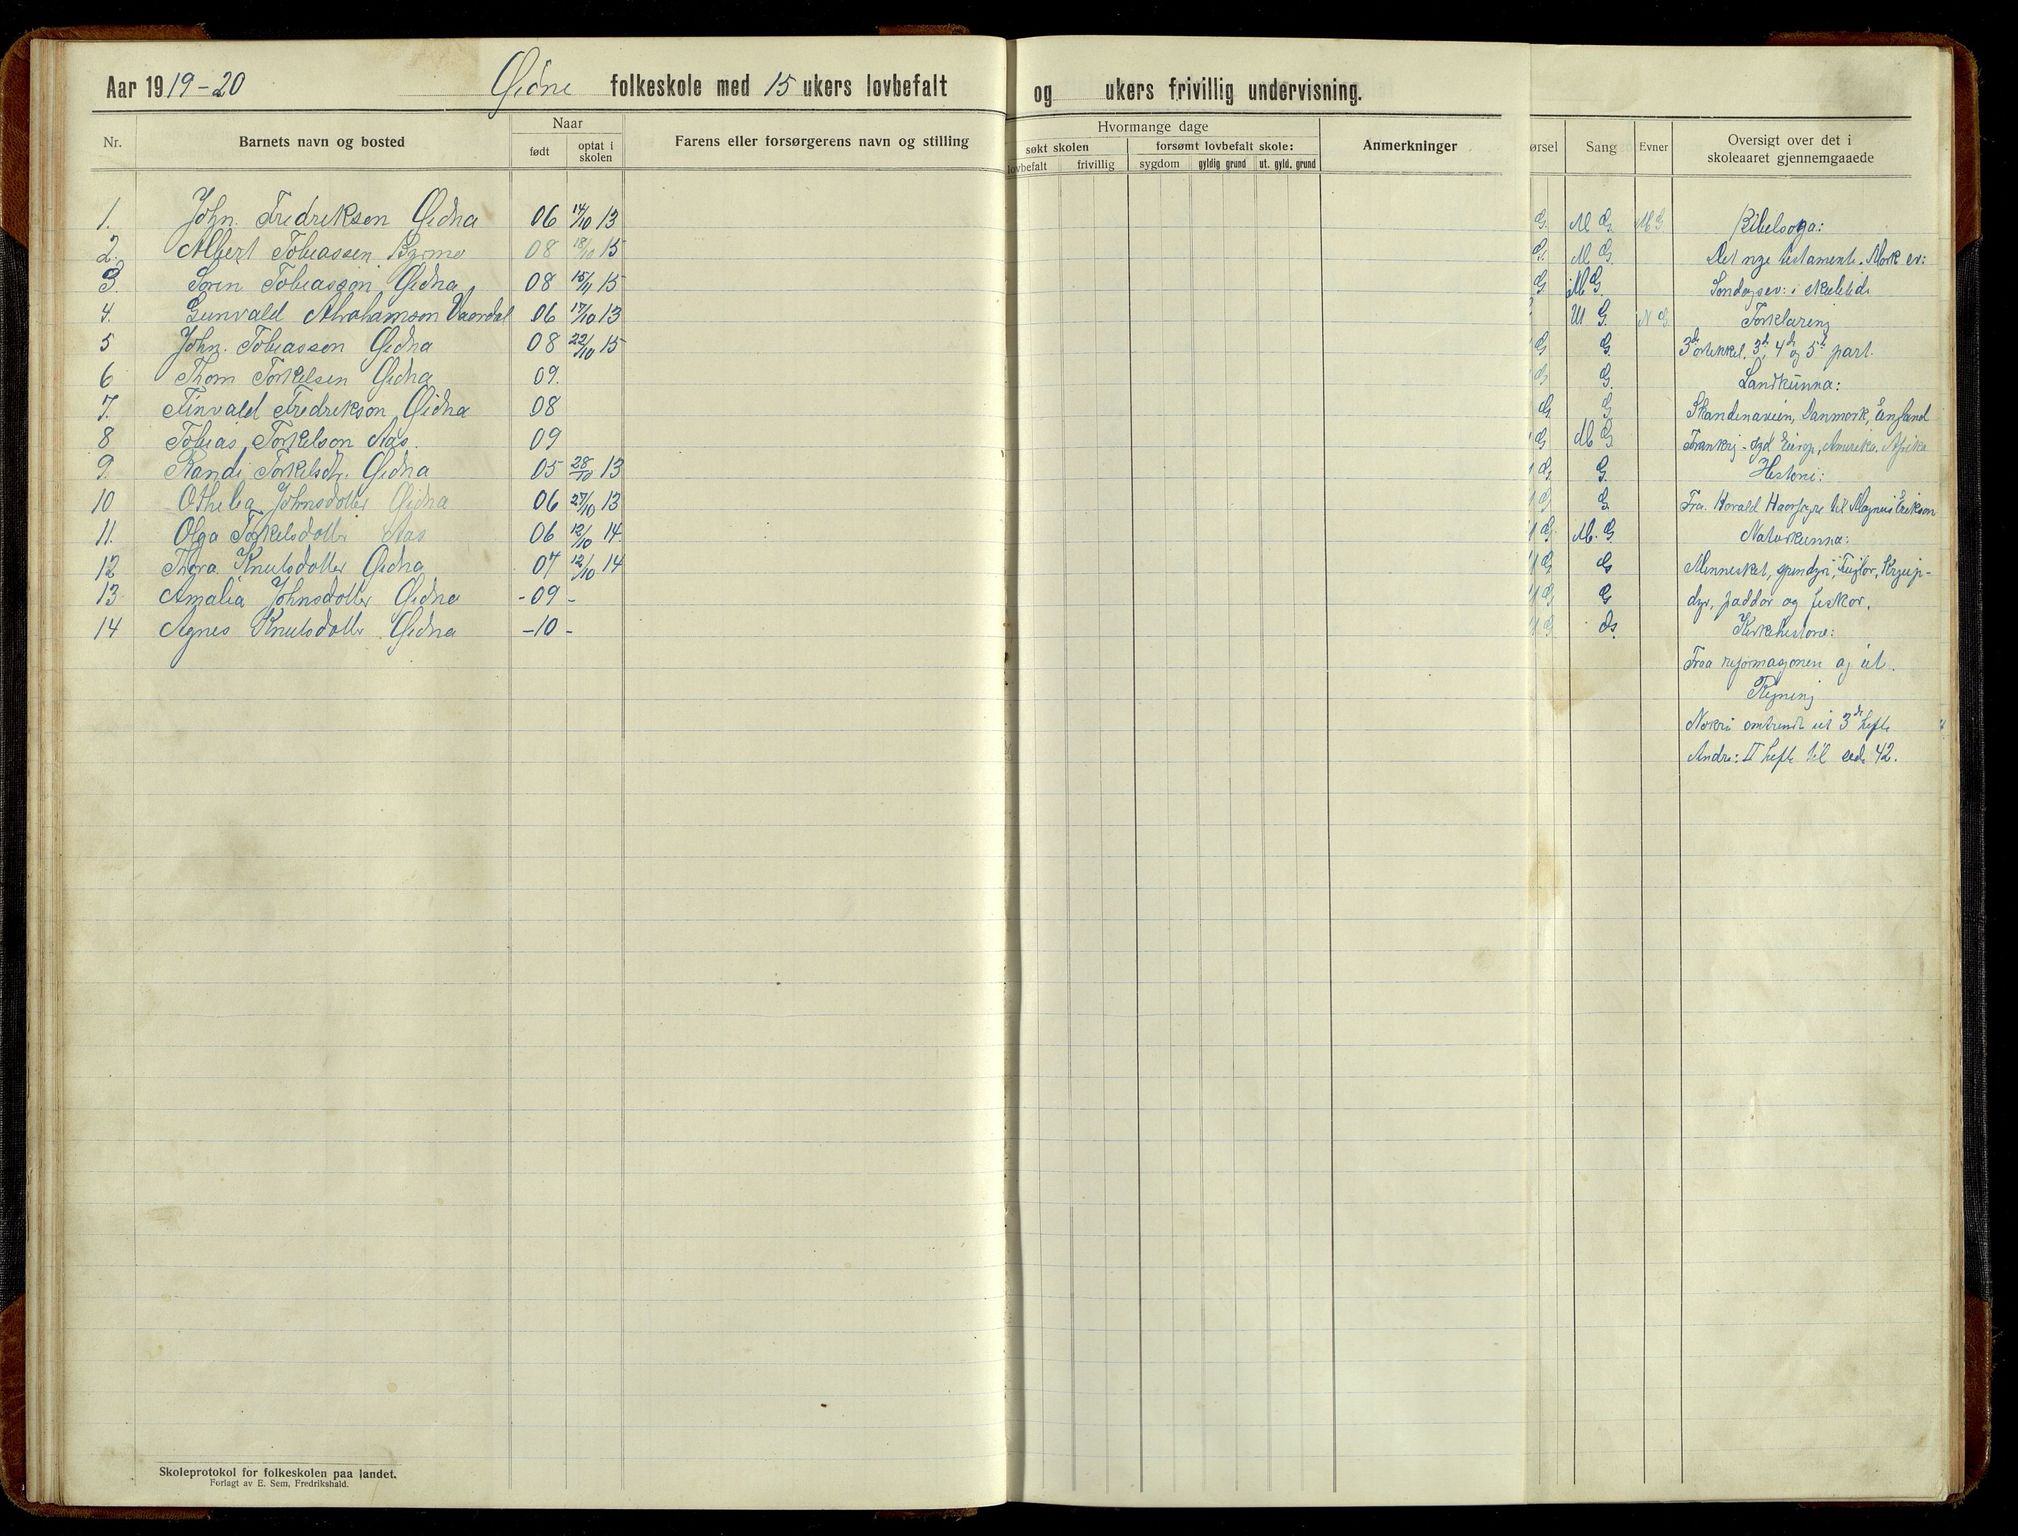 Aar 1919-20 Øidne folkeskole med 15 ukers lovbefalt og ukers frivillig undervisning.
Nr. Barnets navn og bosted Naar født optat i skolen Farens eller forsørgerens navn og stilling Hvormange dage søkt skolen lovbefalt frivillig forsømt lovbefalt skole: sygdom gyldig grund ut. gyld. grund Anmerkninger ørsel Sang Evner Oversigt over det i skoleaaret gjennemgaaede
1. John. Fredriksen Øidna 06 14/10 13 G M G. M G. Bibelsoga:
2. Albert Tobiassen Byrmo 08 18/10 15 G. M G. Det nye testamente. Mark ev:
3. Søren Tobiasson Øidna 08 15/11 15 G M G Søndagsev: i skuletidi
4. Gunvald Abrahamson Vaardal 06 17/10 13 M G. N G. Forklaring
5 John. Tobiasson Øidna 08 22/10 15 G G. 3die artikkel, 3die, 4de og 5te part.
6 Thom Torkelsen Øidna 09. G G. Landkunna:
7. Finvald Fredrikson Øidna 08 G. G Skandinavien, Danmork, England
8 Tobias Torkelson Aas. 09 G M G Frankrig - syd Europ, Amerika, Afrika
9. Randi Torkelsdtr. Øidna 05 28/10 13 G. G. Histori:
10 Othelia Johnsdotter Øidna 06 27/10 13 G G. Fra Harald Haarfagre til Magnus Erikson
11. Olga Torkelsdotter Aas 06 12/10 14. G. M. G Naturkunna:
12 Thora Knutsdotter Øidna 07 12/10 14 G G Mennesket, spendyr, Fuglar, Krjup-
13 Amalia Johnsdotter Øidna - 09 - G G dyr, paddor og fiskar.
14 Agnes Knutsdotter Øidna - 10 - G G. Kirkehistorie:
Fraa reformasjonen og ut.
Rekning
Nokre omtrendt ut 3die hefte
Andre: II hefte til side 42.
Skoleprotokol for folkeskolen paa landet.
Forlagt av E. Sem, Fredrikshald.